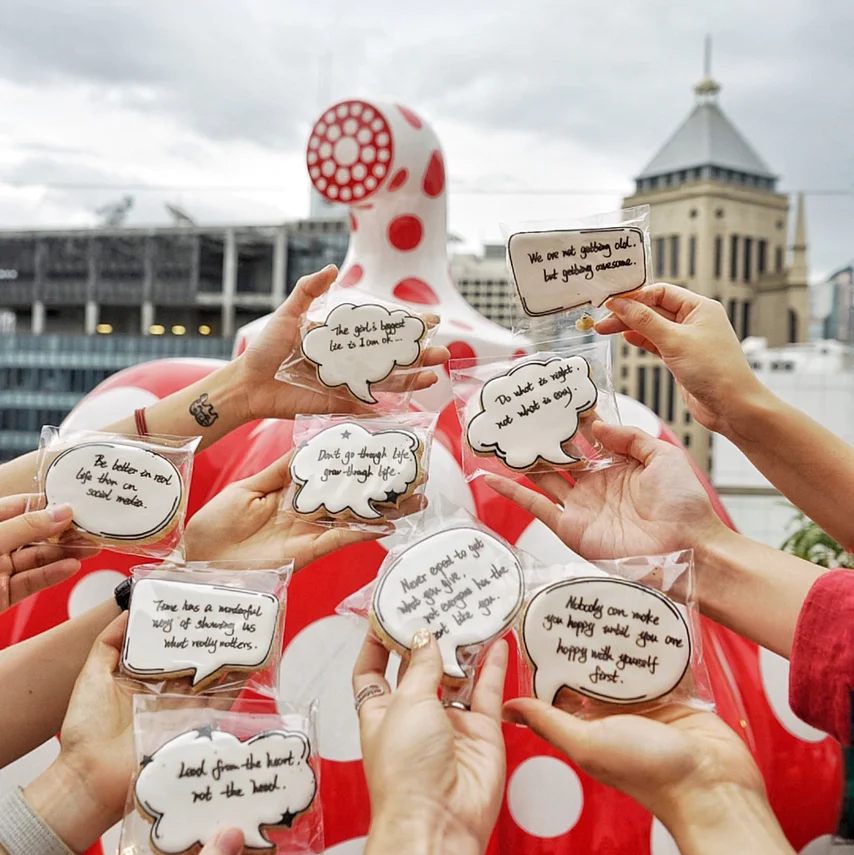 We are not getting old.
but getting awesome.
The girl's biggest
lie is I am ok...
Do what is right.
not what is easy.
Don't go through life,
grow through life.
Be better in real
life than on
social media.
Never expect to get
what you give.
not everyone has the
heart like you.
Time has a wonderful
way of showing us
what really matters.
Nobody can make
you happy until you are
happy with yourself
first.
Lead from the heart.
not the head.